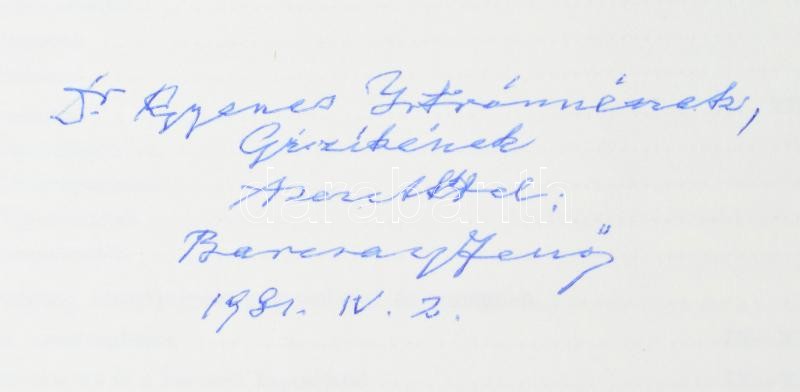 Dr Egyenes Istvánnénak,
Gizikének
szeretettel:
Barcsay Jenő
1981. IV. 2.
darabanth